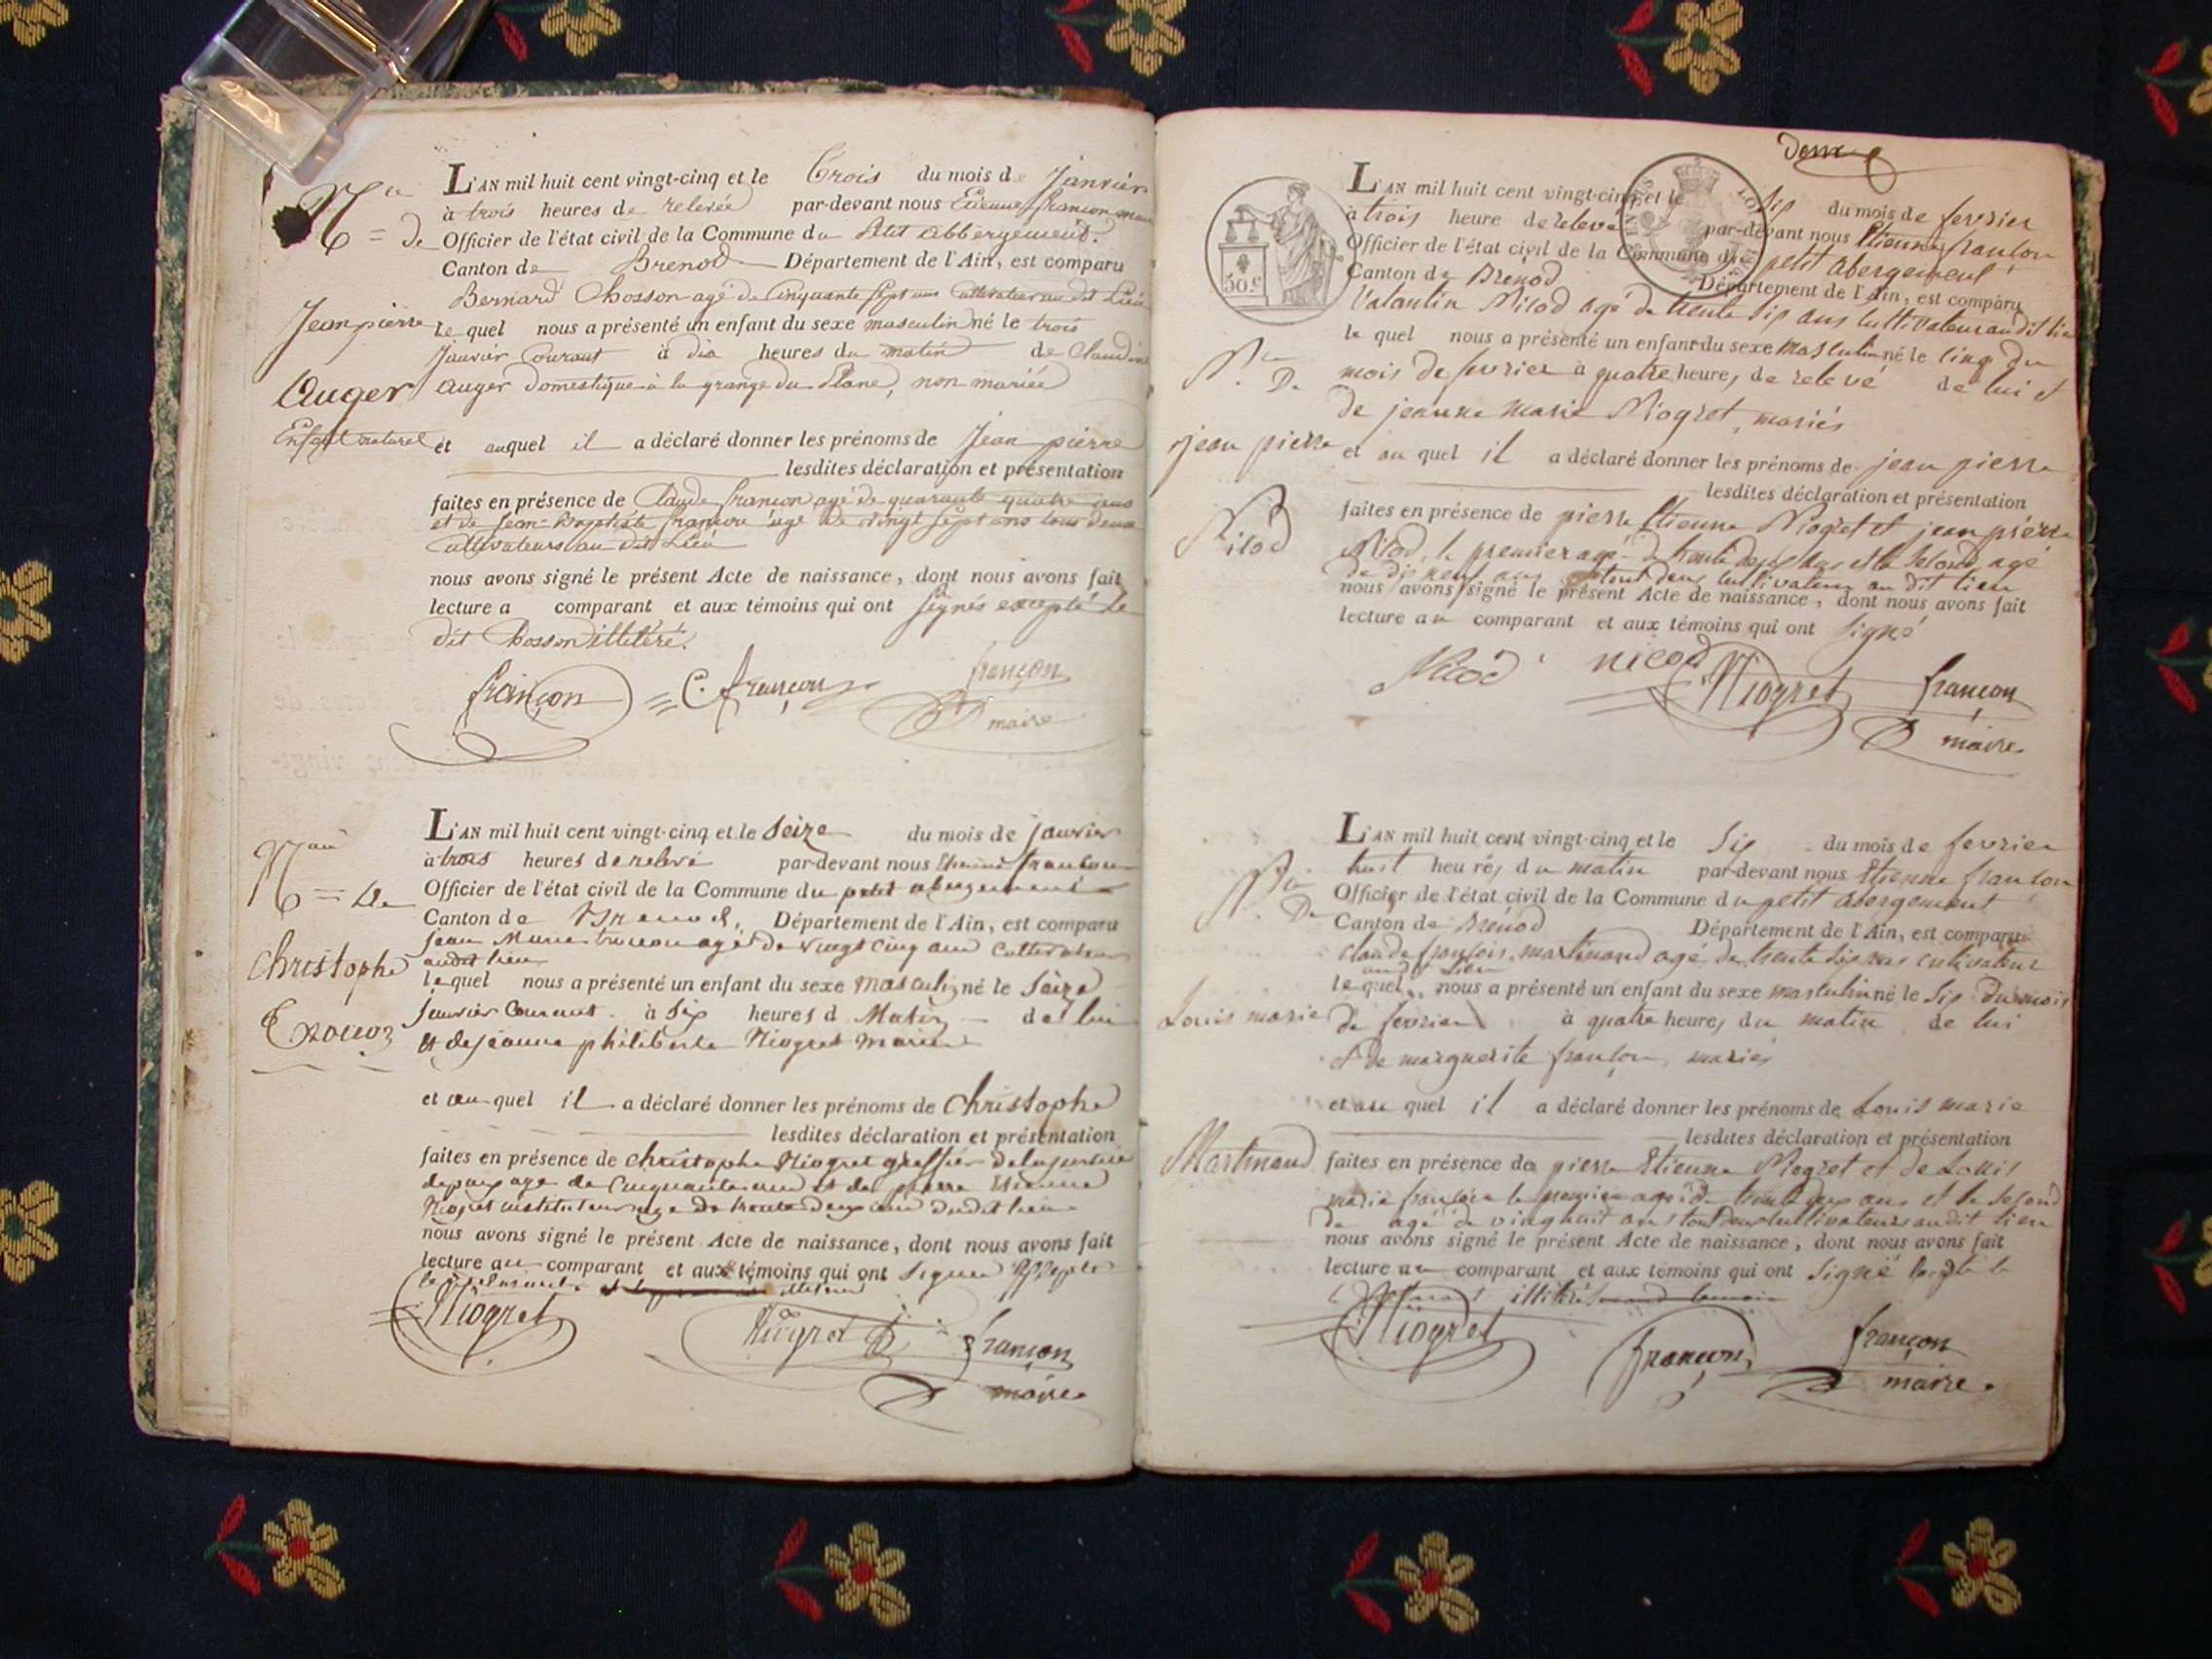 L'AN mil huit cent vingt-cinq et le trois du mois de Janvier
à trois heures de relevée par-devant nous Etienne françon maire
Nce = de Officier de l'état civil de la Commune du Petit abbergement.
Canton de Brenod Département de l'Ain, est comparu
Bernard Chosson agé de Cinquante sept ans Cultivateur au dit Lieu
Jean pierre le quel nous a présenté un enfant du sexe masculin né le trois
Janvier Courant à dix heures du matin de Claudine
Auger auger domestique à la grange du Plane, non mariée
Enfant naturel et auquel il a déclaré donner les prénoms de Jean pierre
lesdites déclaration et présentation
faites en présence de Claude françon agé de quarante quatre ans
et de Jean-Baptiste françon agé de vingt sept ans tous deux
Cultivateurs au dit Lieu
nous avons signé le présent Acte de naissance, dont nous avons fait
lecture a comparant et aux témoins qui ont signés excepté le
dit Chosson illitéré.
françon C. françon françon
maire
L'AN mil huit cent vingt-cinq et le Seize du mois de janvier
à trois heures de relevé par-devant nous Etienne françon
N = de Officier de l'état civil de la Commune du petit abergement
Canton de Brenod, Département de l'Ain, est comparu
jean Marie agé de vingt cinq ans Cultivateur
Christophe audit lieu
le quel nous a présenté un enfant du sexe masculin né le Seize
janvier Courant à Six heures d Matin de lui
et de jeanne philiberte Niogret mariés
et au quel il a déclaré donner les prénoms de Christophe
lesdites déclaration et présentation
faites en présence de Christophe Niogret greffier de la justice
de paix agé de Cinquante ans et de pierre Etienne
Niogret instituteur agé de trente deux ans dudit lieu
nous avons signé le présent Acte de naissance, dont nous avons fait
lecture au comparant et aux témoins qui ont signé
Niogret Niogret françon
maire
deux
L'AN mil huit cent vingt-cinq et le Six du mois de fevrier
à trois heure de relevé par-devant nous Etienne françon
Officier de l'état civil de la Commune du petit abergement
50.c Canton de Brenod Département de l'Ain, est comparu
Valantin Nicod agé de trente six ans cultivateur au dit lieu
le quel nous a présenté un enfant du sexe masculin né le cinq du
Nce De mois de fevrier à quatre heures de relevé de lui et
de jeanne marie Niogret, mariés
jean pierre et au quel il a déclaré donner les prénoms de jean pierre
lesdites déclaration et présentation
Nicod faites en présence de pierre Etienne Niogret et jean pierre
Nicod, le premier agé de trente deux ans et le second agé
de dix neuf ans tout deux cultivateur au dit lieu
nous avons signé le présent Acte de naissance, dont nous avons fait
lecture au comparant et aux témoins qui ont signé
Nicod nicod Niogret françon
maire
L'AN mil huit cent vingt-cinq et le Six du mois de fevrier
huit heures du matin par-devant nous Etienne françon
Nce De Officier de l'état civil de la Commune du petit abergement
Canton de Brénod Département de l'Ain, est comparu
claude françois martinand agé de trente six ans cultivateur
audit lieu
le quel nous a présenté un enfant du sexe masculin né le Six du mois
Louis marie de fevrier à quatre heures du matin de lui
et de marguerite françon, mariés
et au quel il a déclaré donner les prénoms de Louis marie
lesdites déclaration et présentation
Martinand faites en présence de pierre Etienne Niogret et de Louis
marie françon le premier agé de trente deux ans et le second
de agé de vingt huit ans tout deux cultivateurs au dit lieu
nous avons signé le présent Acte de naissance, dont nous avons fait
lecture au comparant et aux témoins qui ont signé
illitéré
Niogret françon françon
maire